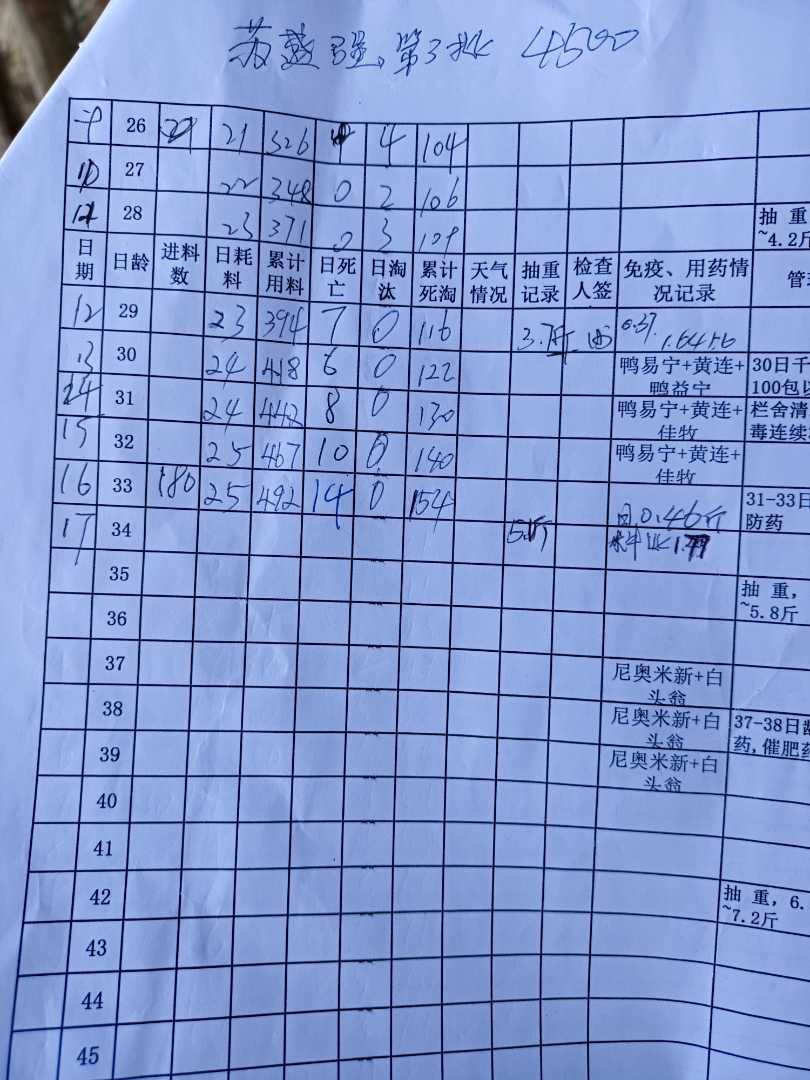 第3批 4500
26 21 326 4 4 104
10 27 22 348 0 2 106
11 28 23 371 0 3 109 抽 重
~4.2斤
日期 日龄 进料数 日耗料 累计用料 日死亡 日淘汰 累计死淘 天气情况 抽重记录 检查人签 免疫、用药情况记录
12 29 23 394 7 0 116 3.7斤
13 30 24 418 6 0 122 鸭易宁+黄连+鸭益宁 30日
100包
14 31 24 442 8 0 130 鸭易宁+黄连+佳牧 栏舍清
毒连续
15 32 25 467 10 0 140 鸭易宁+黄连+佳牧
16 33 180 25 492 14 0 154 日0.46斤 31-33日
防药
17 34
35 抽 重,
~5.8斤
36
37 尼奥米新+白头翁
38 尼奥米新+白头翁 37-38日龄
药,催肥药
39 尼奥米新+白头翁
40
41
42 抽 重, 6.
~7.2斤
43
44
45